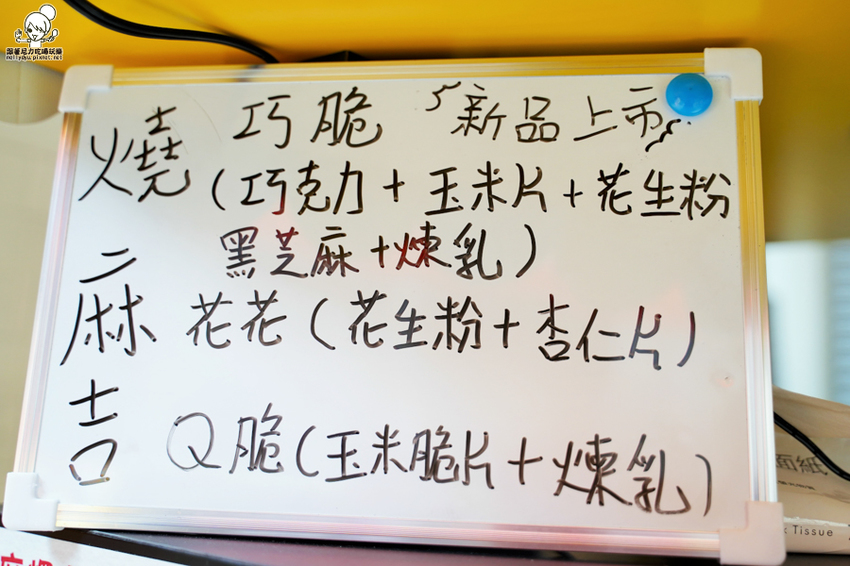 跟著尼力吃喝玩樂
nellydyu.pixnet.net
燒麻吉
巧脆 新品上市
(巧克力+玉米片+花生粉
黑芝麻+煉乳)
花花(花生粉+杏仁片)
Q脆(玉米脆片+煉乳)
面紙
Tissue